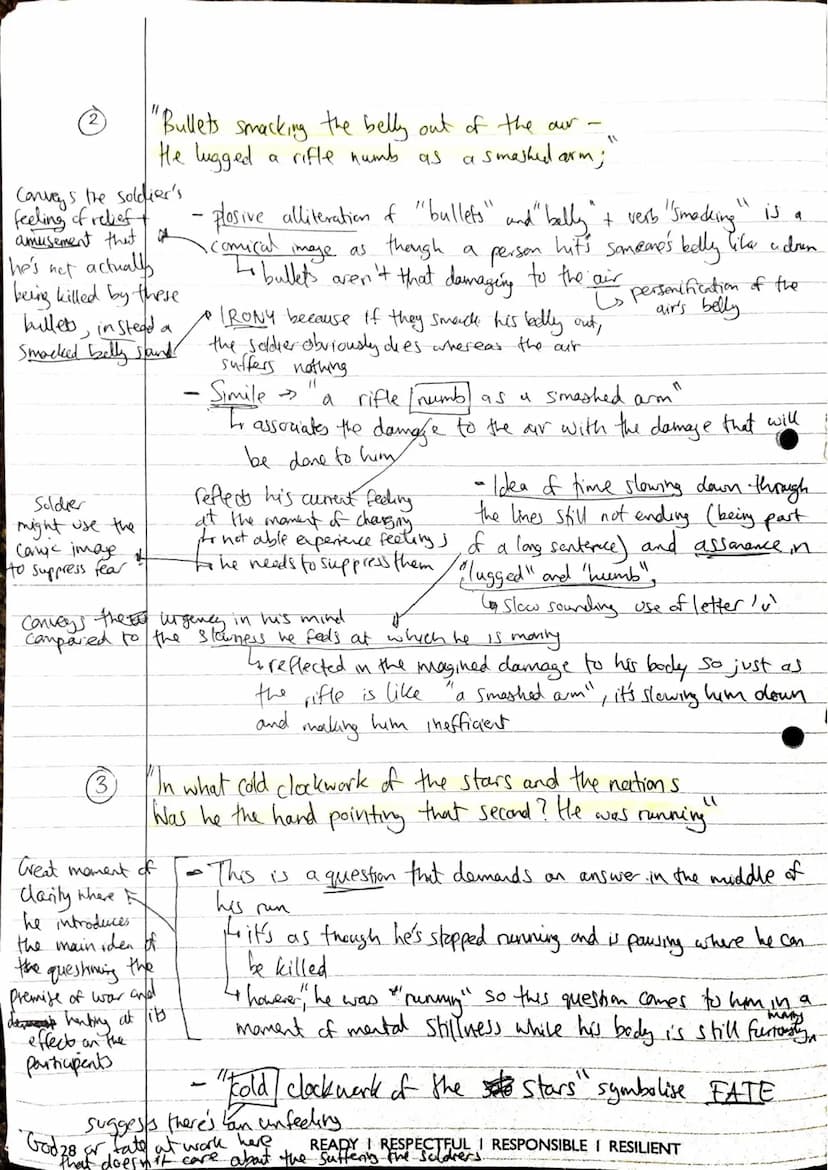 ②
"Bullets smacking the belly out of the air –
He lugged a rifle numb as a smashed arm;"
Conveys the soldier's
feeling of relief +
amusement that
he's not actually
being killed by these
bullets, instead a
smacked belly sand
- plosive alliteration of "bullets" and "belly" + verb "smacking" is a
comical image as though a person hits someone's belly like a drum
↳ bullets aren't that damaging to the air
↳ personification of the
air's belly
IRONY because if they smack his belly out,
the soldier obviously dies whereas the air
suffers nothing
- Simile → "a rifle numb as a smashed arm"
↳ associates the damage to the air with the damage that will
be done to him
reflects his current feeling
at the moment of charging
↳ not able experience feelings
↳ he needs to suppress them
Soldier
might use the
comic image
to suppress fear
- Idea of time slowing down through
the lines still not ending (being part
of a long sentence) and assonance in
"lugged" and "numb",
↳ slow sounding use of letter 'u'
Conveys the urgency in his mind
compared to the slowness he feels at which he is moving
↳ reflected in the imagined damage to his body so just as
the rifle is like "a smashed arm", it's slowing him down
and making him inefficient
③
"In what cold clockwork of the stars and the nations
Was he the hand pointing that second? He was running"
Great moment of
clarity where
he introduces
the main idea of
the questioning the
premise of war and
hinting at its
effects on the
participants
- This is a question that demands an answer in the middle of
his run
↳ it's as though he's stopped running and is pausing where he can
be killed
↳ however, he was "running" so this question comes to him in a
moment of mental stillness while his body is still furiously moving
- "cold clockwork of the stars" symbolise FATE
suggests there's an unfeeling
God or fate at work here
that doesn't care about the suffering the soldiers
28
READY I RESPECTFUL I RESPONSIBLE I RESILIENT